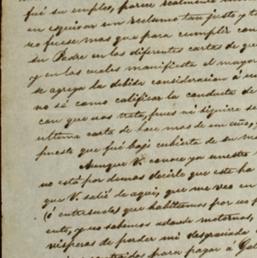 fué su empleo, porque realmente
en esquivar un reclamo tan justo y t
no fuese mas que para cumplir con
su Padre en las diferentes cartas de qu
y en las cuales manifiesta el mayor
se agrega la debida consideracion á
no sé como calificar la conducta de
con que nos trata, pues ni siquiera se
ultima carta de hace mas de un año,
puesto que fué bajo cubierta de su
Aunque V. conoce ya nuestra
no está por demas decirle que este ha
que V. salió de aqui, que me veo en
ó entresuelos que habitamos por no p
ento, y no sabemos adonde meternos,
visperas de perder mi desgraciada
para pagar á